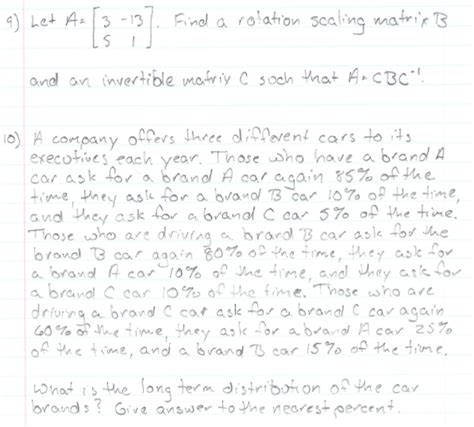 9) Let A = [3 -13
5 1]. Find a rotation scaling matrix B
and an invertible matrix C such that A = CBC⁻¹.
10) A company offers three different cars to its
executives each year. Those who have a brand A
car ask for a brand A car again 85% of the
time, they ask for a brand B car 10% of the time,
and they ask for a brand C car 5% of the time.
Those who are driving a brand B car ask for the
brand B car again 80% of the time, they ask for
a brand A car 10% of the time, and they ask for
a brand C car 10% of the time. Those who are
driving a brand C car ask for a brand C car again
60% of the time, they ask for a brand A car 25%
of the time, and a brand B car 15% of the time.
What is the long term distribution of the car
brands? Give answer to the nearest percent.